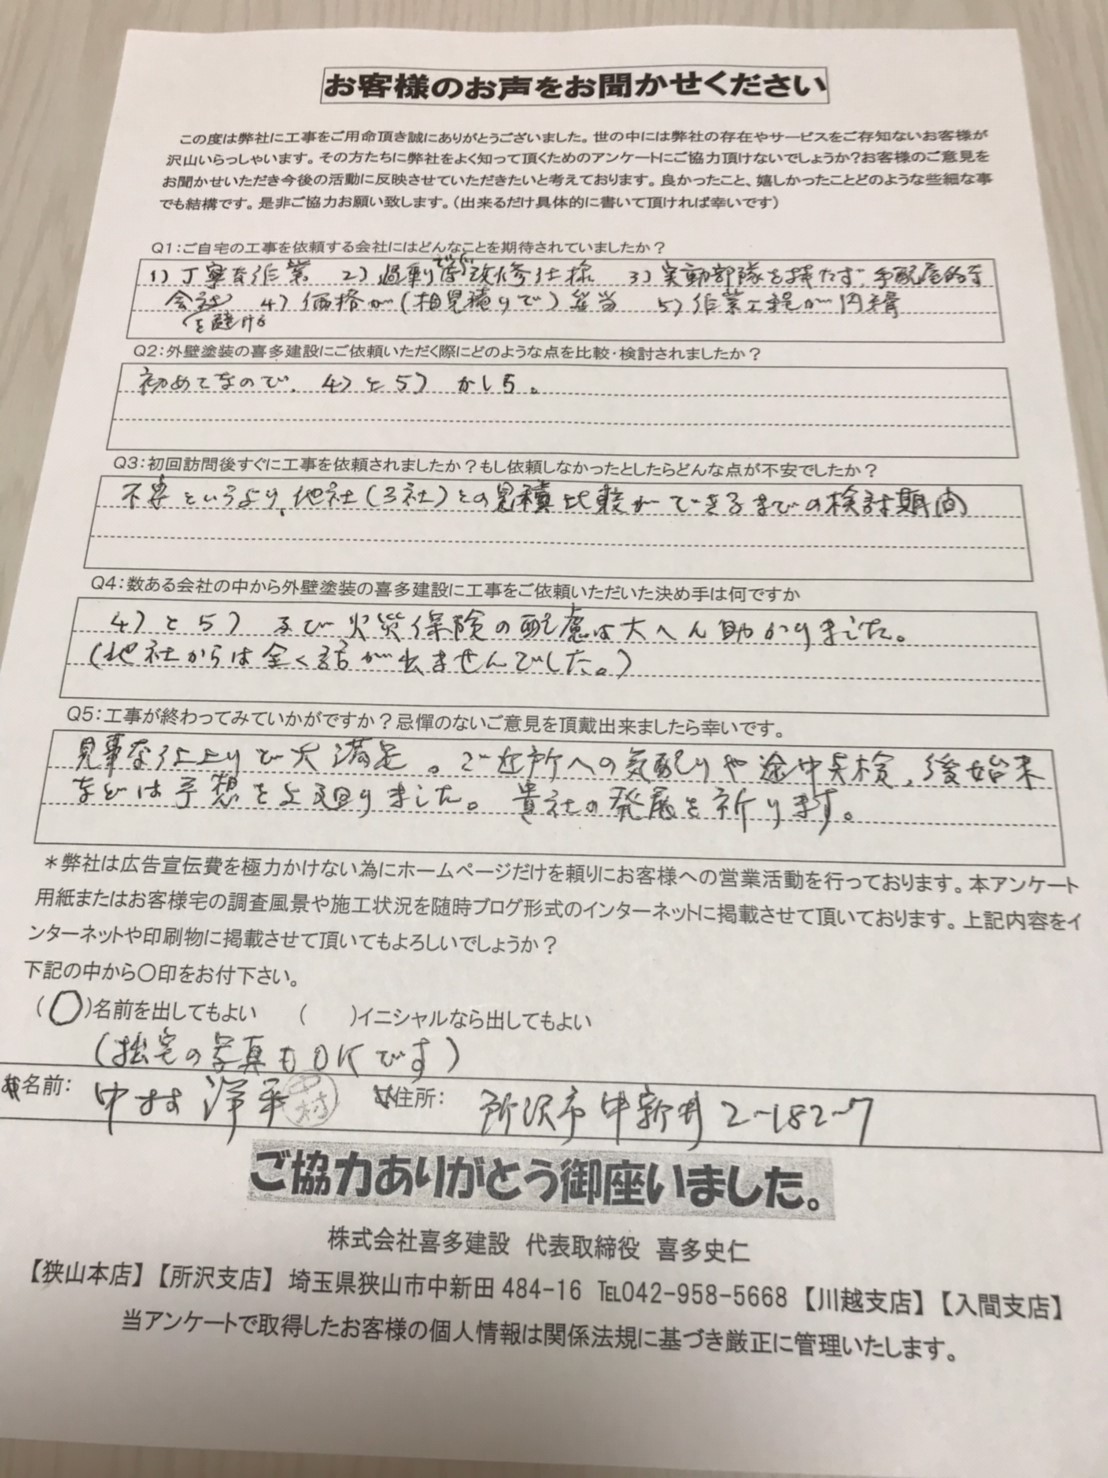 お客様のお声をお聞かせください
この度は弊社に工事をご用命頂き誠にありがとうございました。世の中には弊社の存在やサービスをご存知ないお客様が
沢山いらっしゃいます。その方たちに弊社をよく知って頂くためのアンケートにご協力頂けないでしょうか?お客様のご意見を
お聞かせいただき今後の活動に反映させていただきたいと考えております。良かったこと、嬉しかったことどのような些細な事
でも結構です。是非ご協力お願い致します。(出来るだけ具体的に書いて頂ければ幸いです)
Q1:ご自宅の工事を依頼する会社にはどんなことを期待されていましたか?
1) 丁寧な作業 2) 過剰でない改修仕様 3) 実動部隊を持たず、手配屋的な
会社を避ける 4) 価格が(相見積りで)妥当 5) 作業工程が円滑
Q2:外壁塗装の喜多建設にご依頼いただく際にどのような点を比較・検討されましたか?
初めてなので、4)と5)かしら。
Q3:初回訪問後すぐに工事を依頼されましたか?もし依頼しなかったとしたらどんな点が不安でしたか?
不安というより、他社(3社)との見積比較ができるまでの検討期間
Q4:数ある会社の中から外壁塗装の喜多建設に工事をご依頼いただいた決め手は何ですか
4)と5) 及び火災保険の配慮は大へん助かりました。
(他社からは全く話が出ませんでした。)
Q5:工事が終わってみていかがですか?忌憚のないご意見を頂戴出来ましたら幸いです。
見事な仕上りで大満足。ご近所への気配りや途中点検、後始末
などは予想を上廻りました。貴社の発展を祈ります。
*弊社は広告宣伝費を極力かけない為にホームページだけを頼りにお客様への営業活動を行っております。本アンケート
用紙またはお客様宅の調査風景や施工状況を随時ブログ形式のインターネットに掲載させて頂いております。上記内容をイ
ンターネットや印刷物に掲載させて頂いてもよろしいでしょうか?
下記の中から〇印をお付下さい。
(〇)名前を出してもよい ( )イニシャルなら出してもよい
(拙宅の写真もOKです)
名前: 中村 洋平 中村 住所: 所沢市中新井2-182-7
ご協力ありがとう御座いました。
株式会社喜多建設 代表取締役 喜多史仁
【狭山本店】【所沢支店】埼玉県狭山市中新田484-16 ℡042-958-5668【川越支店】【入間支店】
当アンケートで取得したお客様の個人情報は関係法規に基づき厳正に管理いたします。